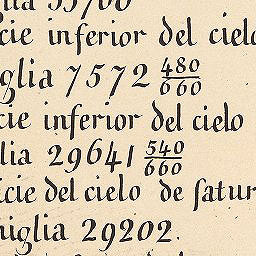 cie inferior del cielo
iglia 7572 480/660
cie inferior del cielo
lia 29641 540/660
icie del cielo de satur
niglia 29202.